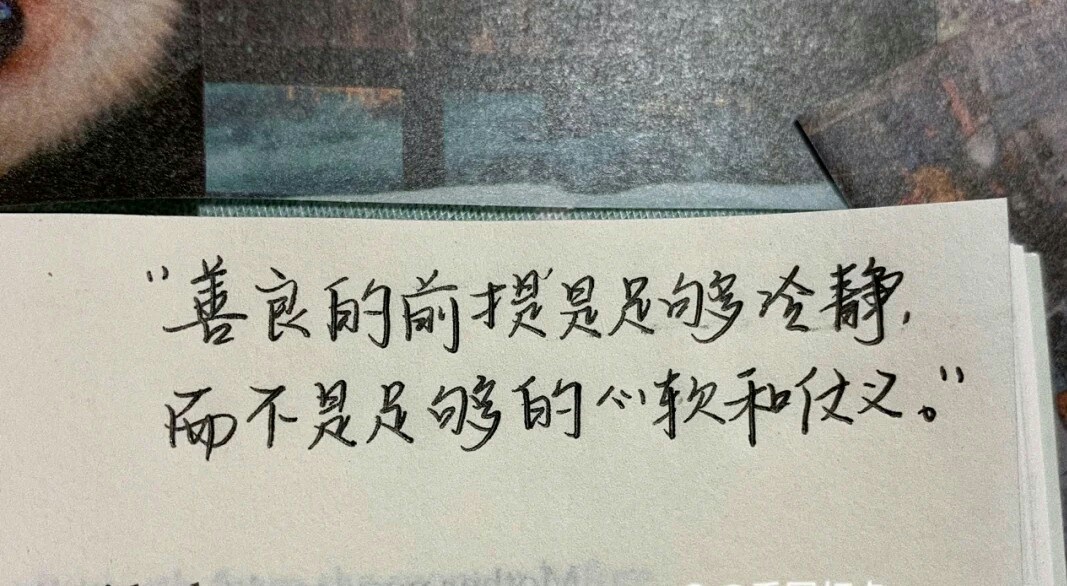 “善良的前提是足够冷静,
而不是足够的心软和仗义。”